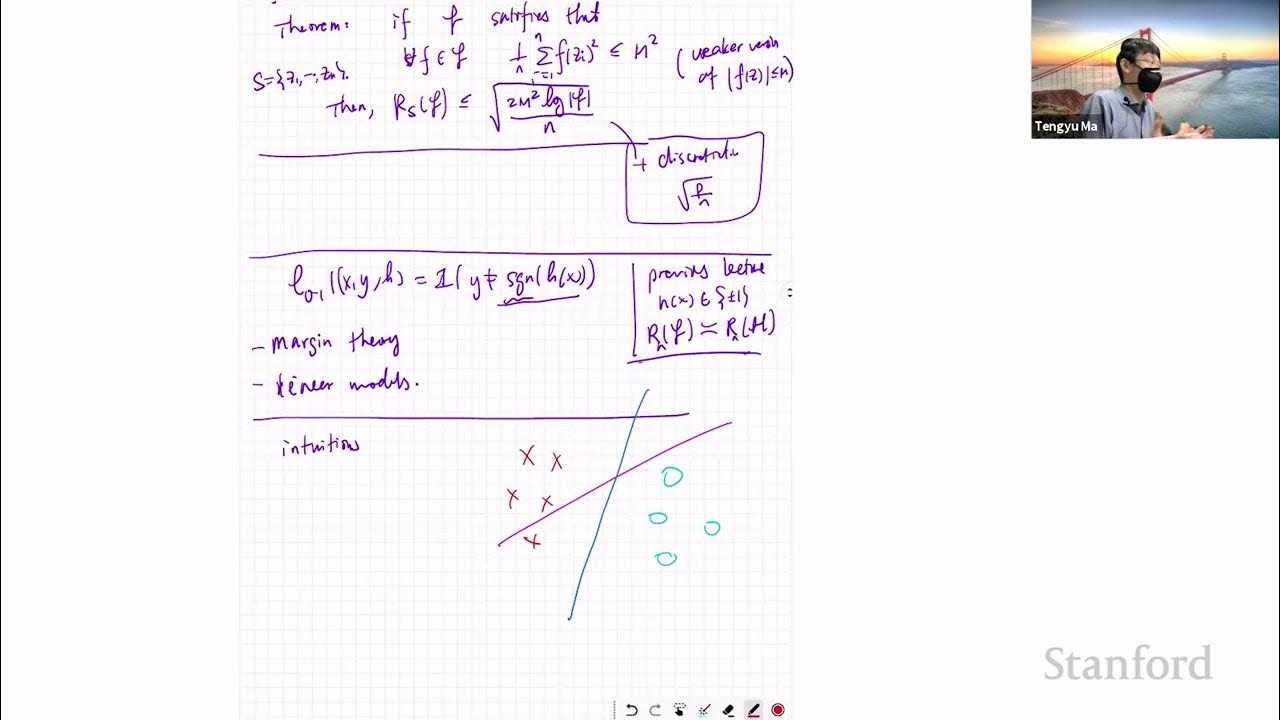 Theorem: if F satisfies that
∀f ∈ F 1/n Σ_{i=1}^n f(z_i)² ≤ M² (weaker version
S={z_1,…,z_n}. of |f(z)| ≤ M)
Then, R_S(F) ≤ √(2M² log|F| / n)
+
√(p/n)
ℓ_{0-1}((x,y,h) = 1(y ≠ sgn(h(x)))
previous lecture
h(x) ∈ {±1}
R_n(F) ≍ R_n(H)
- Margin theory
- linear models.
intuitions
Tengyu Ma
Stanford